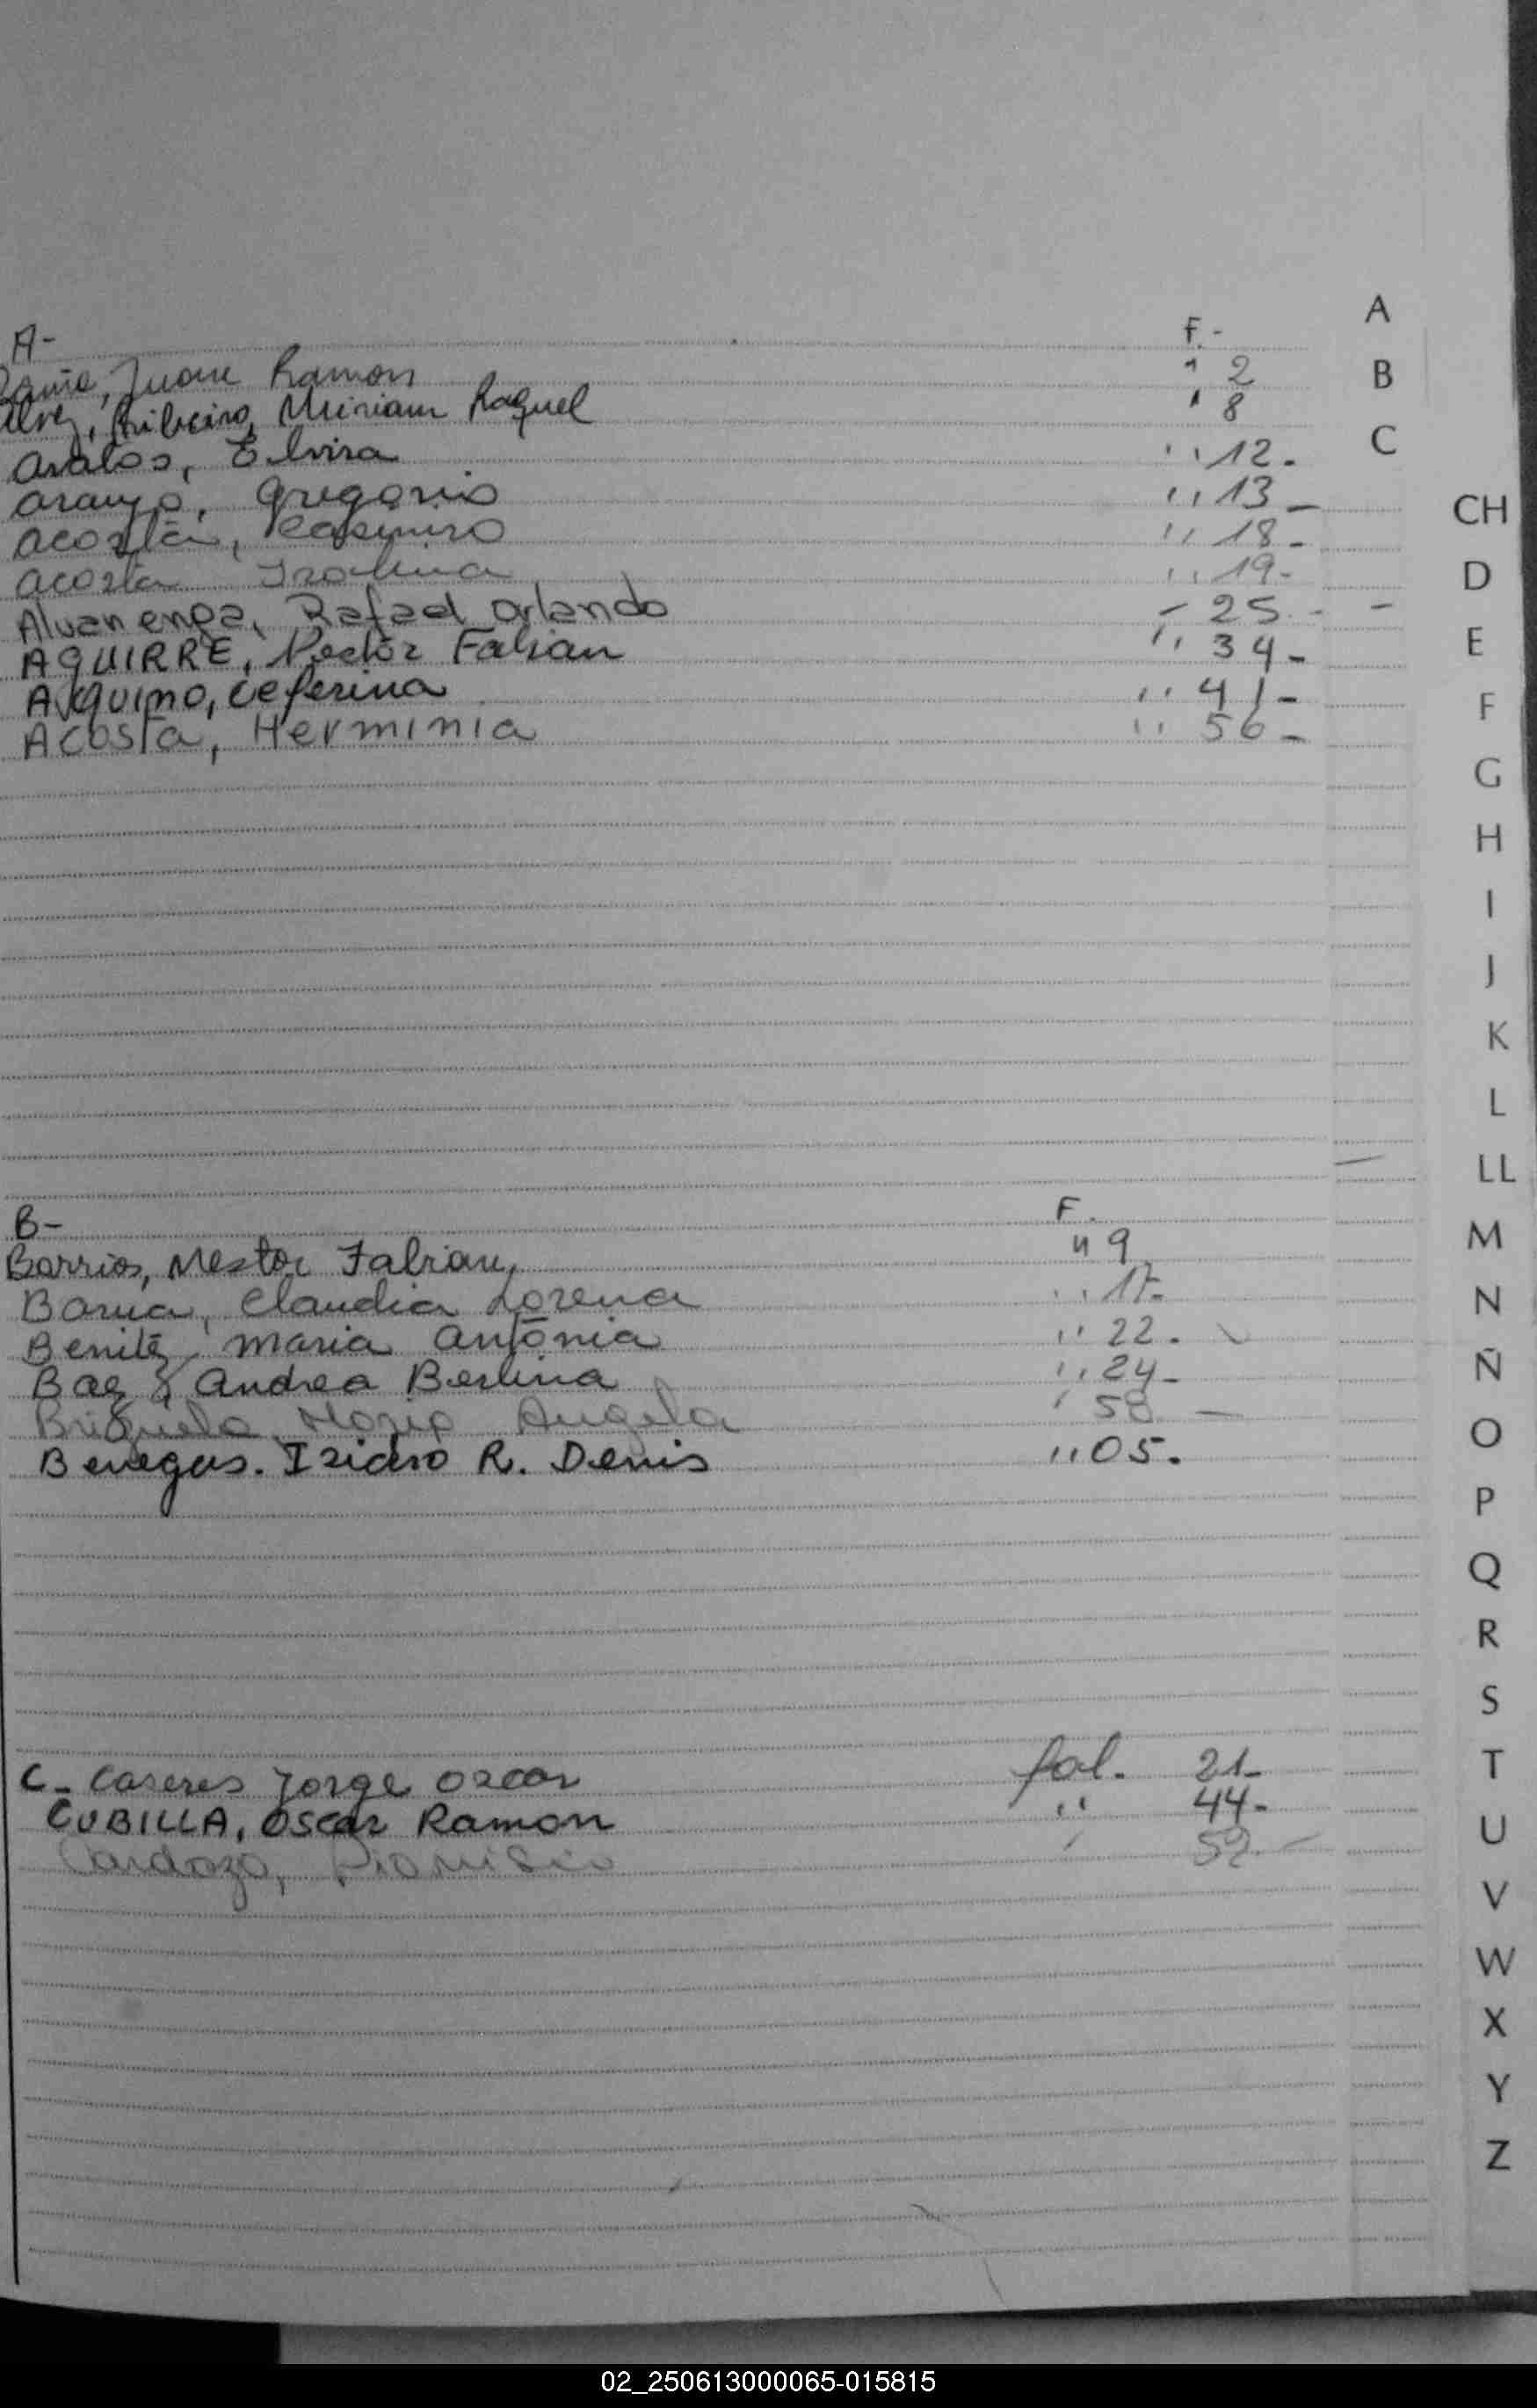 A
F.-
A-
B
Juan Ramon " 2
Miriam Raquel " 8
C
Avalos, Elvira " 12.
Araujo, Gregorio " 13-
CH
Acosta, Casimiro " 18-
Acosta Isolina " 19-
D
Alvarenga, Rafael Orlando - 25 - -
E
AGUIRRE, Hector Fabian " 34-
AQUINO, Ceferina " 41-
F
Acosta, Herminia " 56-
G
H
I
J
K
L
LL
B- F.
M
Barrios, Nestor Fabian, " 9
N
Barua, Claudia Lorena " 17-
Benitez, Maria Antonia " 22.
Ñ
Baez, Andrea Berlina " 24-
Maria Angela " 58 -
O
Benegas. Isidro R. Denis " 05.
P
Q
R
S
C- Caseres Jorge Oscar fol. 21-
T
CUBILLA, Oscar Ramon " 44-
U
Cardozo, Dionisio " 52-
V
W
X
Y
Z
02_250613000065-015815